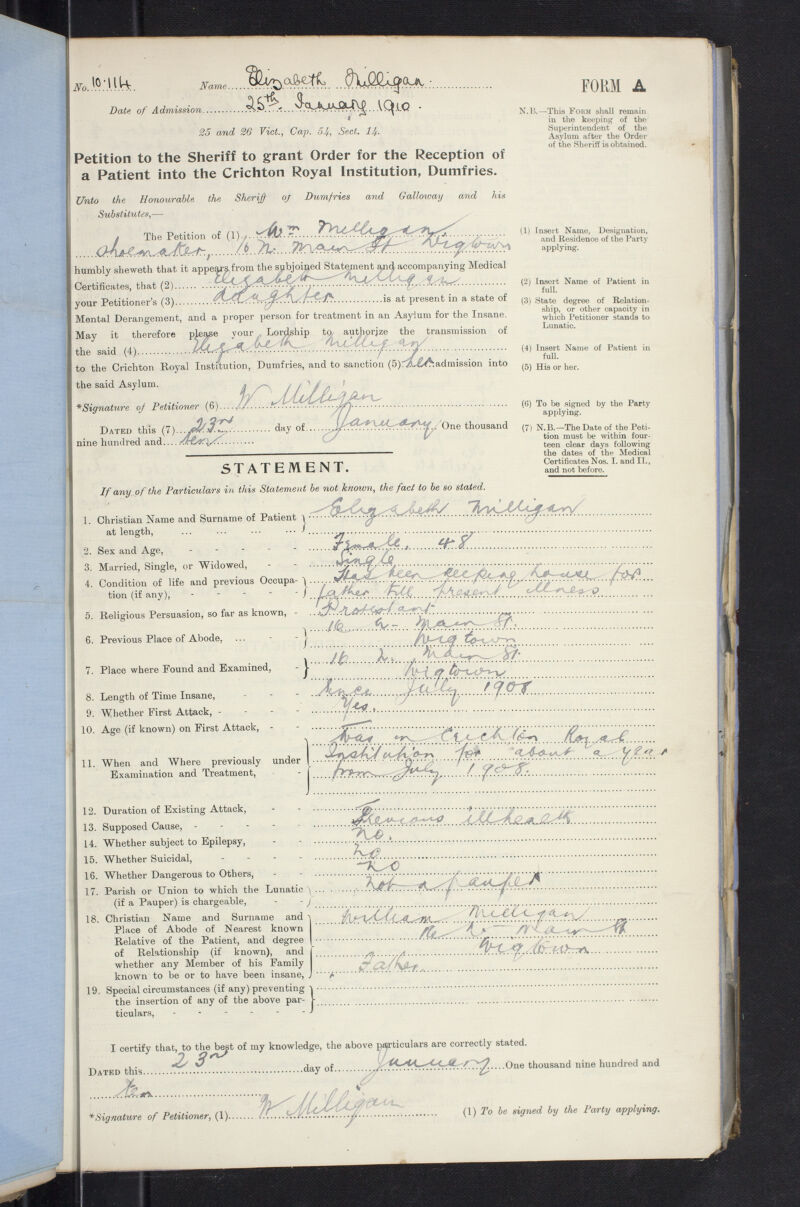 No. 10.114. Name Elizabeth Milligan. FORM A
Date of Admission 25th January 1910.
25 and 26 Vict., Cap. 54, Sect. 14.
N.B.—This Form shall remain
in the keeping of the
Superintendent of the
Asylum after the Order
of the Sheriff is obtained.
Petition to the Sheriff to grant Order for the Reception of
a Patient into the Crichton Royal Institution, Dumfries.
Unto the Honourable the Sheriff of Dumfries and Galloway and his
Substitutes,—
The Petition of (1) Wm Milligan
Shoemaker, 16 N. Main St Wigtown
(1) Insert Name, Designation,
and Residence of the Party
applying.
humbly sheweth that it appears from the subjoined Statement and accompanying Medical
Certificates, that (2) Elizabeth Milligan
(2) Insert Name of Patient in
full.
your Petitioner's (3) daughter is at present in a state of
(3) State degree of Relation-
ship, or other capacity in
which Petitioner stands to
Lunatic.
Mental Derangement, and a proper person for treatment in an Asylum for the Insane.
May it therefore please your Lordship to authorize the transmission of
the said (4) Elizabeth Milligan
(4) Insert Name of Patient in
full.
to the Crichton Royal Institution, Dumfries, and to sanction (5) her admission into
(5) His or her.
the said Asylum.
*Signature of Petitioner (6) W Milligan
(6) To be signed by the Party
applying.
Dated this (7) 23rd day of January One thousand
nine hundred and ten
(7) N.B.—The Date of the Peti-
tion must be within four-
teen clear days following
the dates of the Medical
Certificates Nos. I. and II.,
and not before.
STATEMENT.
If any of the Particulars in this Statement be not known, the fact to be so stated.
1. Christian Name and Surname of Patient
at length, ... ... ... ... Elizabeth Milligan
2. Sex and Age, - - - - - Female, 48
3. Married, Single, or Widowed, - - Single
4. Condition of life and previous Occupa-
tion (if any), - - - - - Has been keeping house for
father till present illness
5. Religious Persuasion, so far as known, - Protestant
6. Previous Place of Abode, ... - - 16 N. Main St.
Wigtown
7. Place where Found and Examined, - 16 N. Main St.
Wigtown
8. Length of Time Insane, - - - Since July 1908
9. Whether First Attack, - - - - Yes.
10. Age (if known) on First Attack, - - —
11. When and Where previously under
Examination and Treatment, - Was in Crichton Royal
Institution for about a year
from July 1908.
12. Duration of Existing Attack, - - —
13. Supposed Cause, - - - - - Previous ill health
14. Whether subject to Epilepsy, - - No.
15. Whether Suicidal, - - - - No
16. Whether Dangerous to Others, - - No
17. Parish or Union to which the Lunatic
(if a Pauper) is chargeable, - - Not a pauper
18. Christian Name and Surname and
Place of Abode of Nearest known
Relative of the Patient, and degree
of Relationship (if known), and
whether any Member of his Family
known to be or to have been insane,
William Milligan
16 N. Main St
Wigtown
Father.
19. Special circumstances (if any) preventing
the insertion of any of the above par-
ticulars, - - - - - -
I certify that, to the best of my knowledge, the above particulars are correctly stated.
Dated this 23rd day of January One thousand nine hundred and
ten
*Signature of Petitioner, (1) W Milligan (1) To be signed by the Party applying.